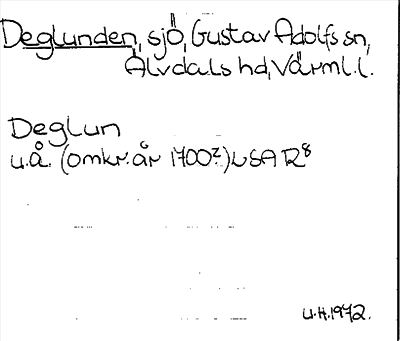 Deglunden, sjö, Gustav Adolfs sn,
Älvdals hd, Värml. l.
Deglun
u.å. (omkr. år 1700?) LSA R8
U.H. 1972.